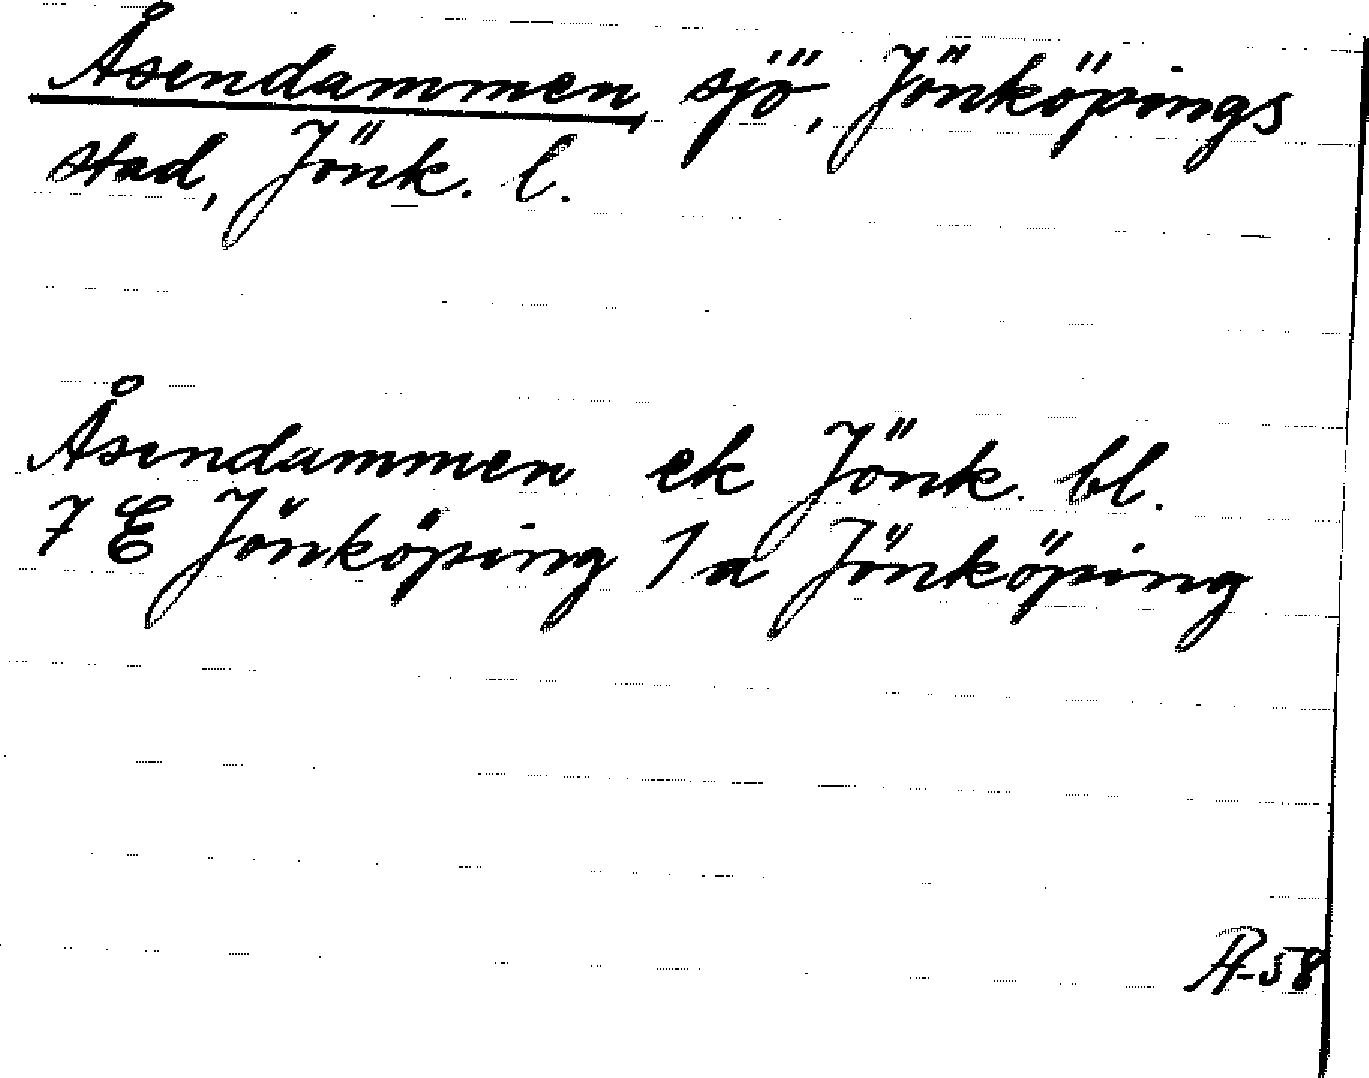 Åsendammen, sjö, Jönköpings
stad, Jönk. l.
Åsendammen ek Jönk. bl.
7 E Jönköping 1a Jönköping
-58